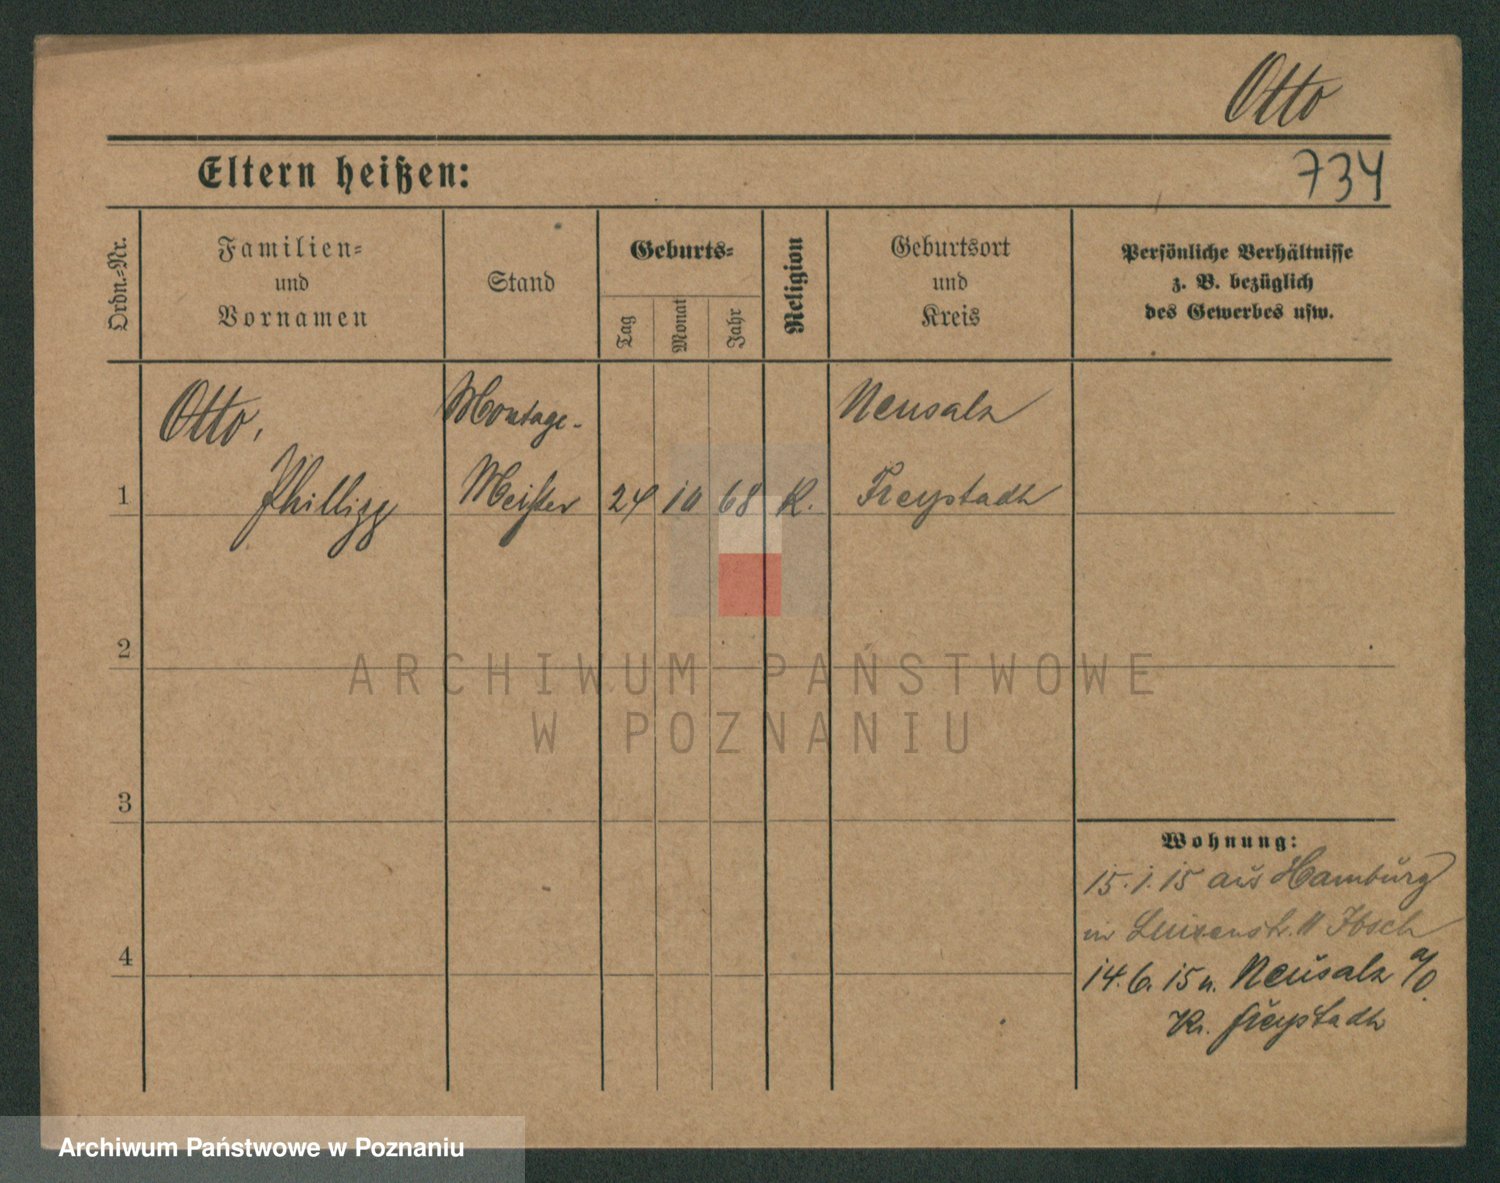 Otto
Eltern heißen:
734
Ordn.-Nr.
Familien-
und
Vornamen
Stand
Geburts-
Tag
Monat
Jahr
Religion
Geburtsort
und
Kreis
Persönliche Verhältnisse
z. B. bezüglich
des Gewerbes usw.
Otto,
Montage-
Neusalz
1
Phillipp
Meister
24
10
68
K.
Freystadt
2
ARCHIWUM PAŃSTWOWE
W POZNANIU
3
Wohnung:
15.1.15 aus Hamburg
in Luisenstr. 11
4
14.6.15 n. Neusalz a/O.
Kr. Freystadt
Archiwum Państwowe w Poznaniu